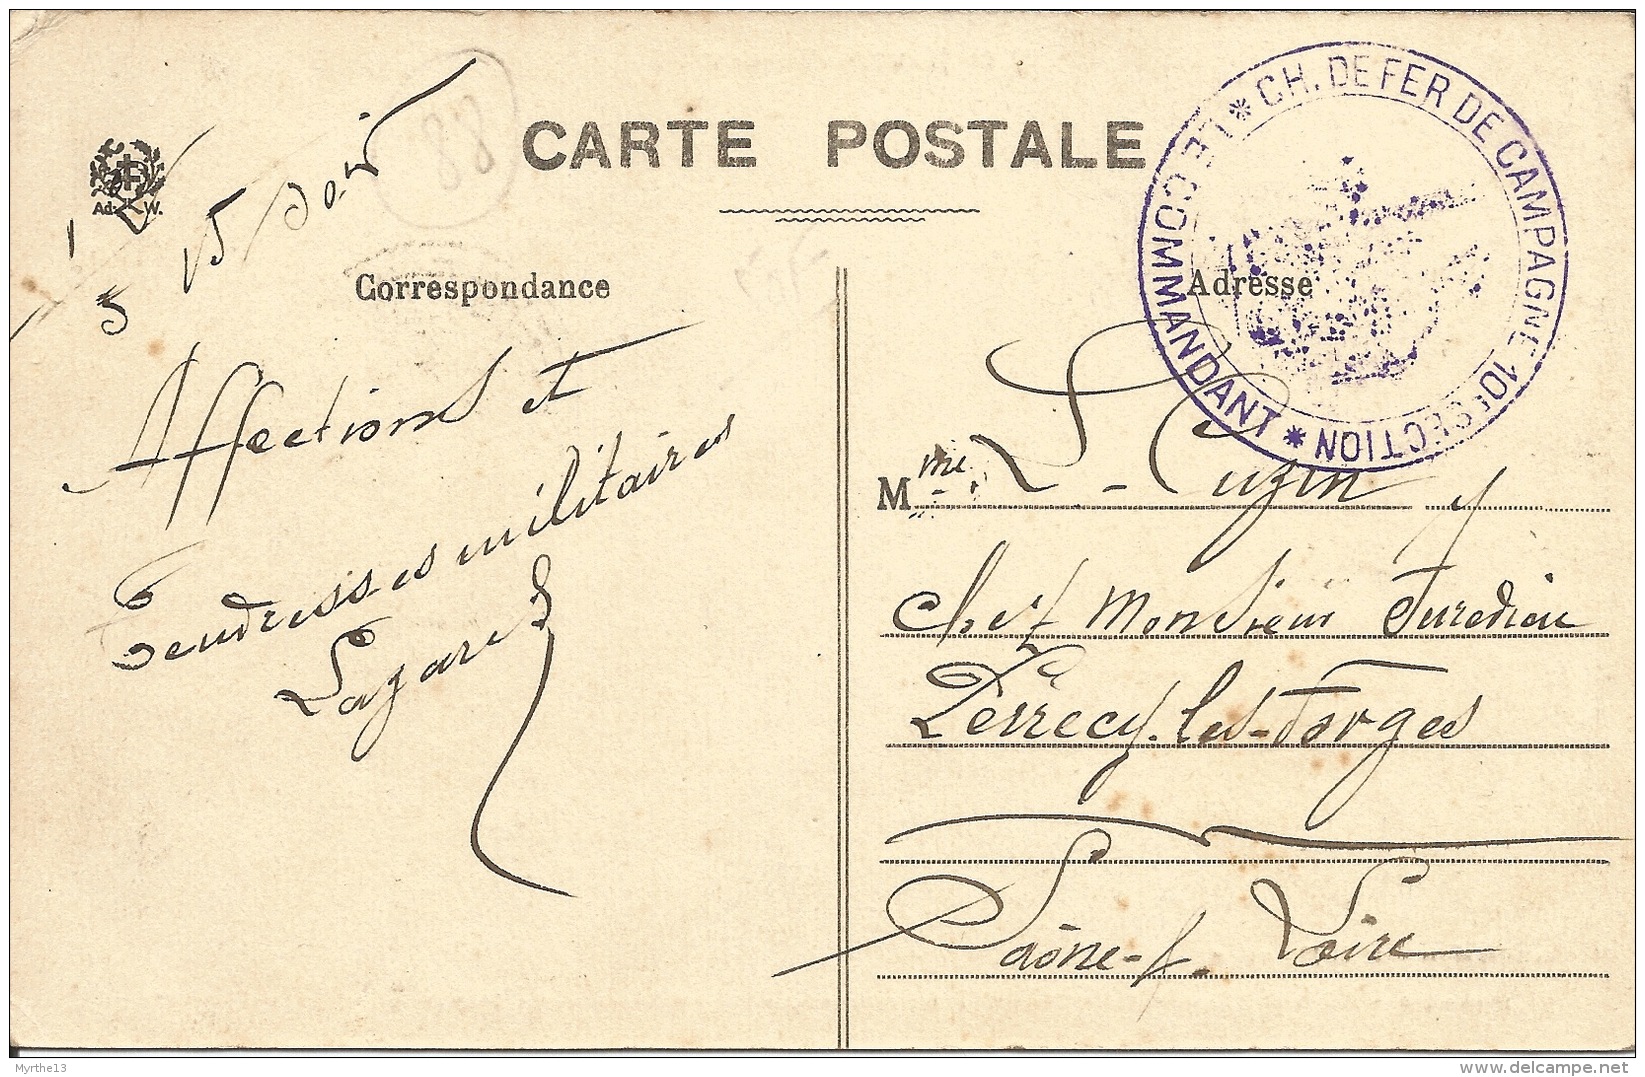 CARTE POSTALE
Ad. W.
88
Correspondance
Adresse
* CH. DE FER DE CAMPAGNE 10E SECTION * LE COMMANDANT
15 soir
Affections et
Tendresses militaires
Lazare
Mme L. Cuzin
Chez Monsieur
Perrecy-les-Forges
Saône-&-Loire
Myrthe13
www.delcampe.net